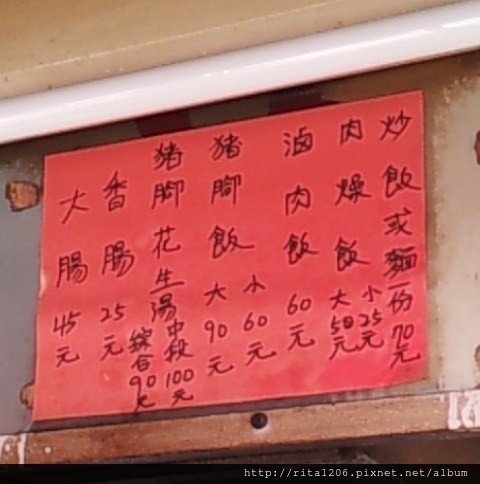 炒飯或麵一份70元
肉燥飯 小25元
大50元
滷肉飯 60元
豬腳飯 小60元
大90元
豬腳花生湯 中段100元
綜合90元
香腸 25元
大腸 45元
http://rita1206.pixnet.net/album